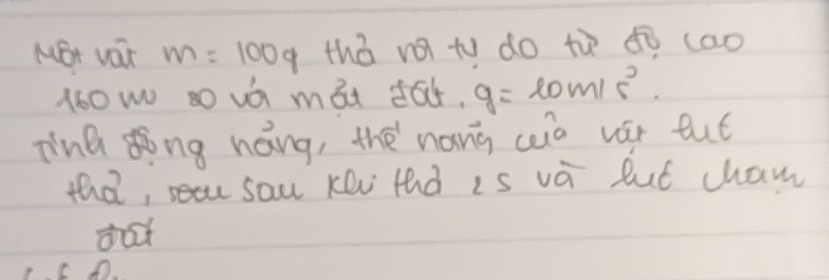 Một vật m = 100g thả rơi tự do từ độ cao
160m so với mặt đất, g = 10m/s².
Tính động năng, thế năng của vật lúc
thả, sau khi thả 2s và lúc chạm
đất